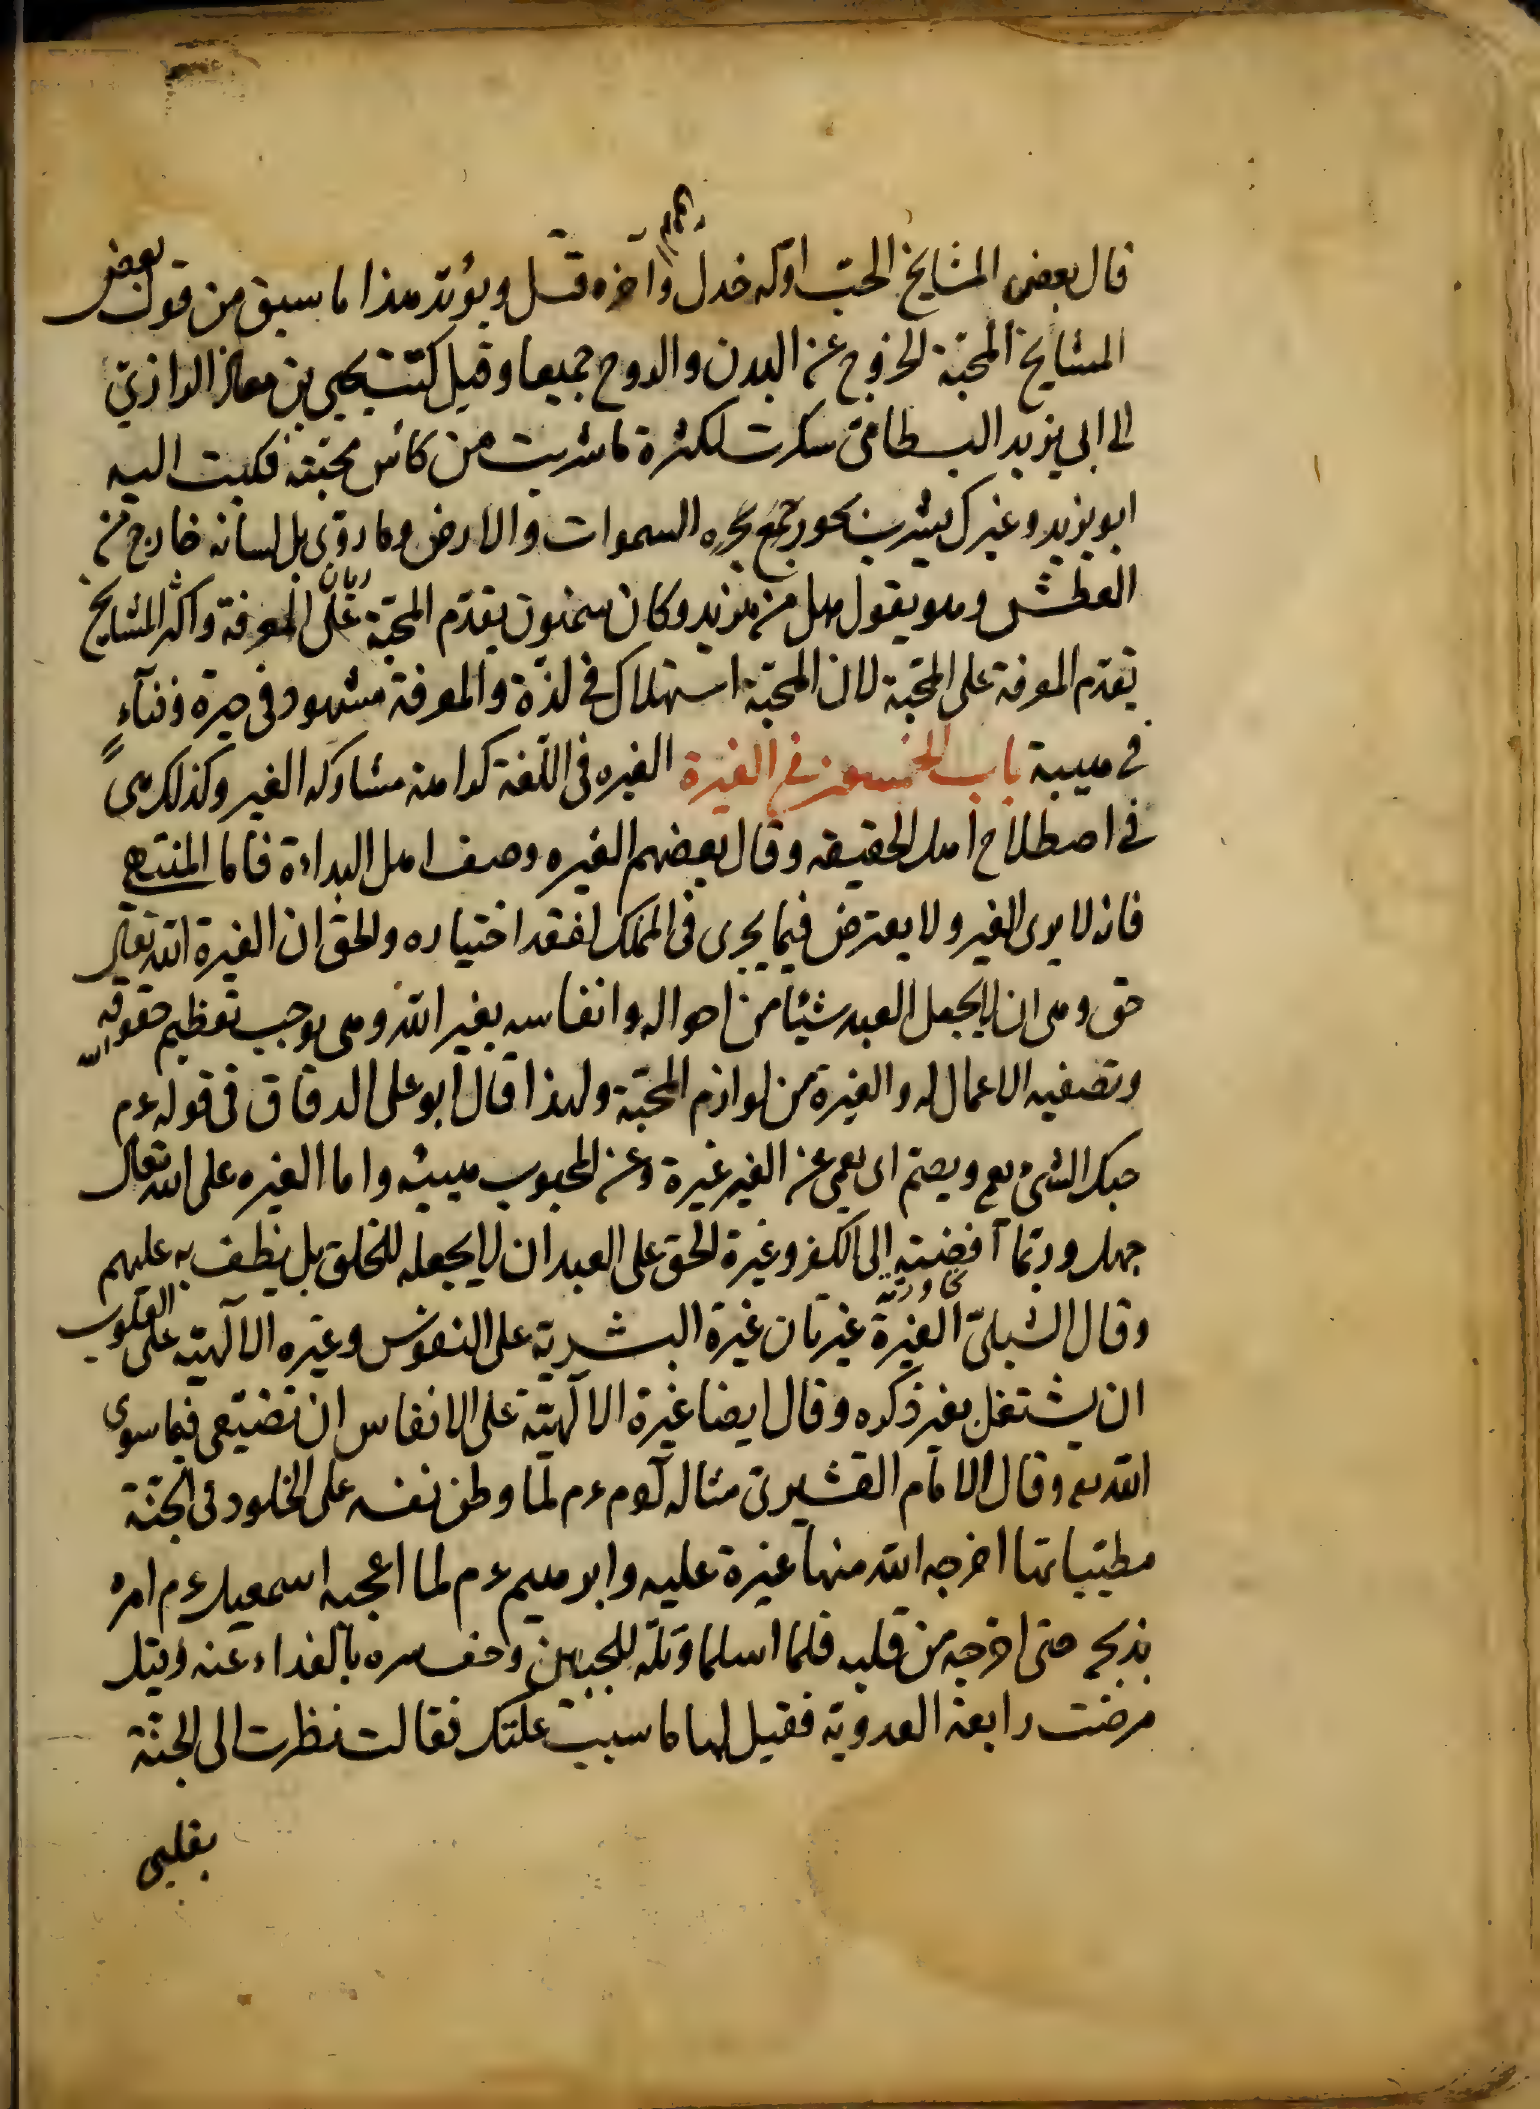 قال بعض المشايخ الحب اوله خدل وآخره قتل ويؤيد هذا ما سبق من قول بعض
المشايخ المحبة الخروج عن البدن والروح جميعا وقيل كتب يحيى بن معاز الرازي
الى ابي يزيد البسطامي سكرت لكثرة ما شربت من كأس محبته فكتب اليه
ابو يزيد وغيرك يشرب بحور السموات والارض وما روى بل لسانه خارج من
العطش وهو يقول هل من مزيد وكان سمنون يقدم المحبة على المعرفة واكثر المشايخ
يقدم المعرفة على المحبة لان المحبة استهلاك في لذة والمعرفة مشهود في حيرة وفنآء
في هيبة باب الخمسون في الغيرة الغيره في اللغة كرامة مشاركه الغير وكذلك هى
في اصطلاح اهل الحقيقه وقال بعضهم الغيره وصف اهل البداءة فاما المنتهى
فانه لا يرى الغير ولا يعترض فيما يجرى فى المملكة لفقد اختياره والحق ان الغيرة الله تعالى
حق وهى ان لا يجعل العبد شيئا من احواله وانفاسه بغير الله وهى يوجب تعظيم حقوقه الله
وتصفيه الاعمال له والغيرة من لوازم المحبة ولهذا قال ابو على الدقاق فى قوله ءم
حبك الشئ يعمى ويصم اى يعمى عن الغير غيرة وعن المحبوب هيبة واما الغيره على الله تعالى
جهل وربما افضيته الى الكفر وغيرة الحق على العبد ان لا يجعله للخلق بل ينظف به عليهم
وقال الشبلى الغيرة غيرتان غيرة البشرية على النفوس وغيره الآلهية على القلوب
ان يشتغل بغير ذكره وقال ايضا غيرة الآلهية على الانفاس ان تضيع فيما سوى
الله تعم وقال الامام القشيرى مثاله آدم ءم لما وطن نفسه على الخلود فى الجنة
مطيباتها اخرجه الله منها غيرة عليه وابرهيم ءم لما اعجبه اسمعيل ءم امره
بذبحه حتى اخرجه من قلبه فلما اسلما وتله للجبين وصف سره بالفداء عنه وقيل
مرضت رابعة العدوية فقيل لها ما سبب علتك فقالت نظرت الى الجنة
بقلبى